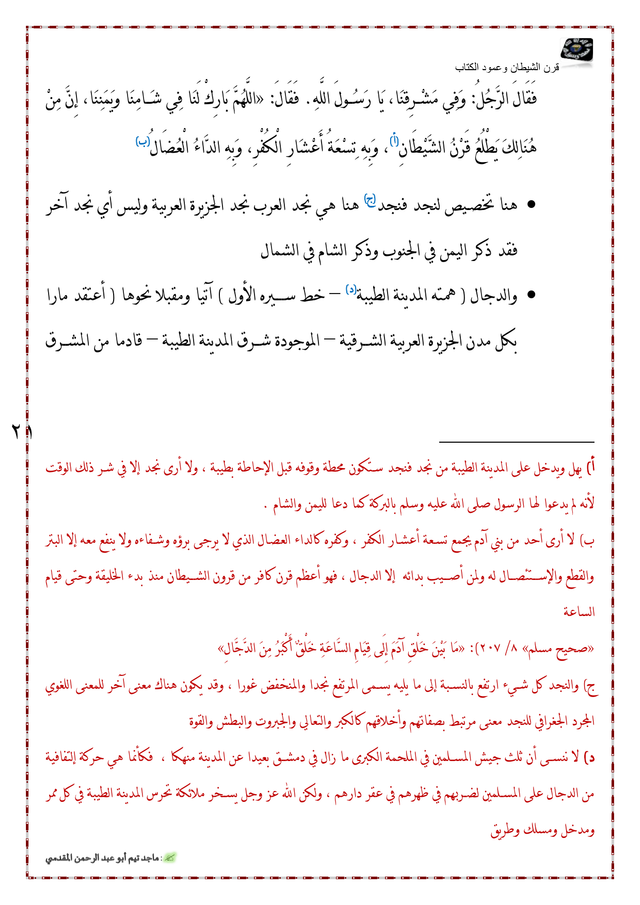 قرن الشيطان وعمود الكتاب
فَقَالَ الرَّجُلُ: وَفِي مَشْرِقِنَا، يَا رَسُولَ اللَّهِ. فَقَالَ: «اللَّهُمَّ بَارِكْ لَنَا فِي شَامِنَا وَيَمَنِنَا، إِنَّ مِنْ
هُنَالِكَ يَطْلُعُ قَرْنُ الشَّيْطَانِ(أ)، وَبِهِ تِسْعَةُ أَعْشَارِ الْكُفْرِ، وَبِهِ الدَّاءُ الْعُضَالُ(ب)
● هنا تخصيص لنجد فنجد(ج) هنا هي نجد العرب نجد الجزيرة العربية وليس أي نجد آخر
فقد ذكر اليمن في الجنوب وذكر الشام في الشمال
● والدجال ( همته المدينة الطيبة(د) – خط سيره الأول ) آتيا ومقبلا نحوها ( أعتقد مارا
بكل مدن الجزيرة العربية الشرقية – الموجودة شرق المدينة الطيبة – قادما من المشرق
٢١
أ) يهل ويدخل على المدينة الطيبة من نجد فنجد ستكون محطة وقوفه قبل الإحاطة بطيبة ، ولا أرى نجد إلا في شر ذلك الوقت
لأنه لم يدعوا لها الرسول صلى الله عليه وسلم بالبركة كما دعا لليمن والشام .
ب) لا أرى أحد من بني آدم يجمع تسعة أعشار الكفر ، وكفره كالداء العضال الذي لا يرجى برؤه وشفاءه ولا ينفع معه إلا البتر
والقطع والإستئصال له ولمن أصيب بدائه إلا الدجال ، فهو أعظم قرن كافر من قرون الشيطان منذ بدء الخليقة وحتى قيام
الساعة
«صحيح مسلم» ٨/ ٢٠٧): «مَا بَيْنَ خَلْقِ آدَمَ إِلَى قِيَامِ السَّاعَةِ خَلْقٌ أَكْبَرُ مِنَ الدَّجَّالِ»
ج) والنجد كل شيء ارتفع بالنسبة إلى ما يليه يسمى المرتفع نجدا والمنخفض غورا ، وقد يكون هناك معنى آخر للمعنى اللغوي
المجرد الجغرافي للنجد معنى مرتبط بصفاتهم وأخلاقهم كالكبر والتعالي والجبروت والبطش والقوة
د) لا ننسى أن ثلث جيش المسلمين في الملحمة الكبرى ما زال في دمشق بعيدا عن المدينة منهكا ، فكأنما هي حركة إلتفافية
من الدجال على المسلمين لضربهم في ظهرهم في عقر دارهم ، ولكن الله عز وجل يسخر ملائكة تحرس المدينة الطيبة في كل ممر
ومدخل ومسلك وطريق
: ماجد تيم أبو عبد الرحمن المقدسي